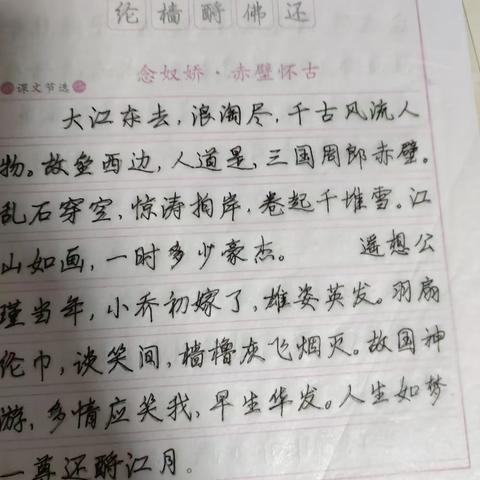 纶樯酹佛还
念奴娇·赤壁怀古
课文节选
大江东去，浪淘尽，千古风流人
物。故垒西边，人道是，三国周郎赤壁。
乱石穿空，惊涛拍岸，卷起千堆雪。江
山如画，一时多少豪杰。 遥想公
瑾当年，小乔初嫁了，雄姿英发。羽扇
纶巾，谈笑间，樯橹灰飞烟灭。故国神
游，多情应笑我，早生华发。人生如梦
一尊还酹江月。